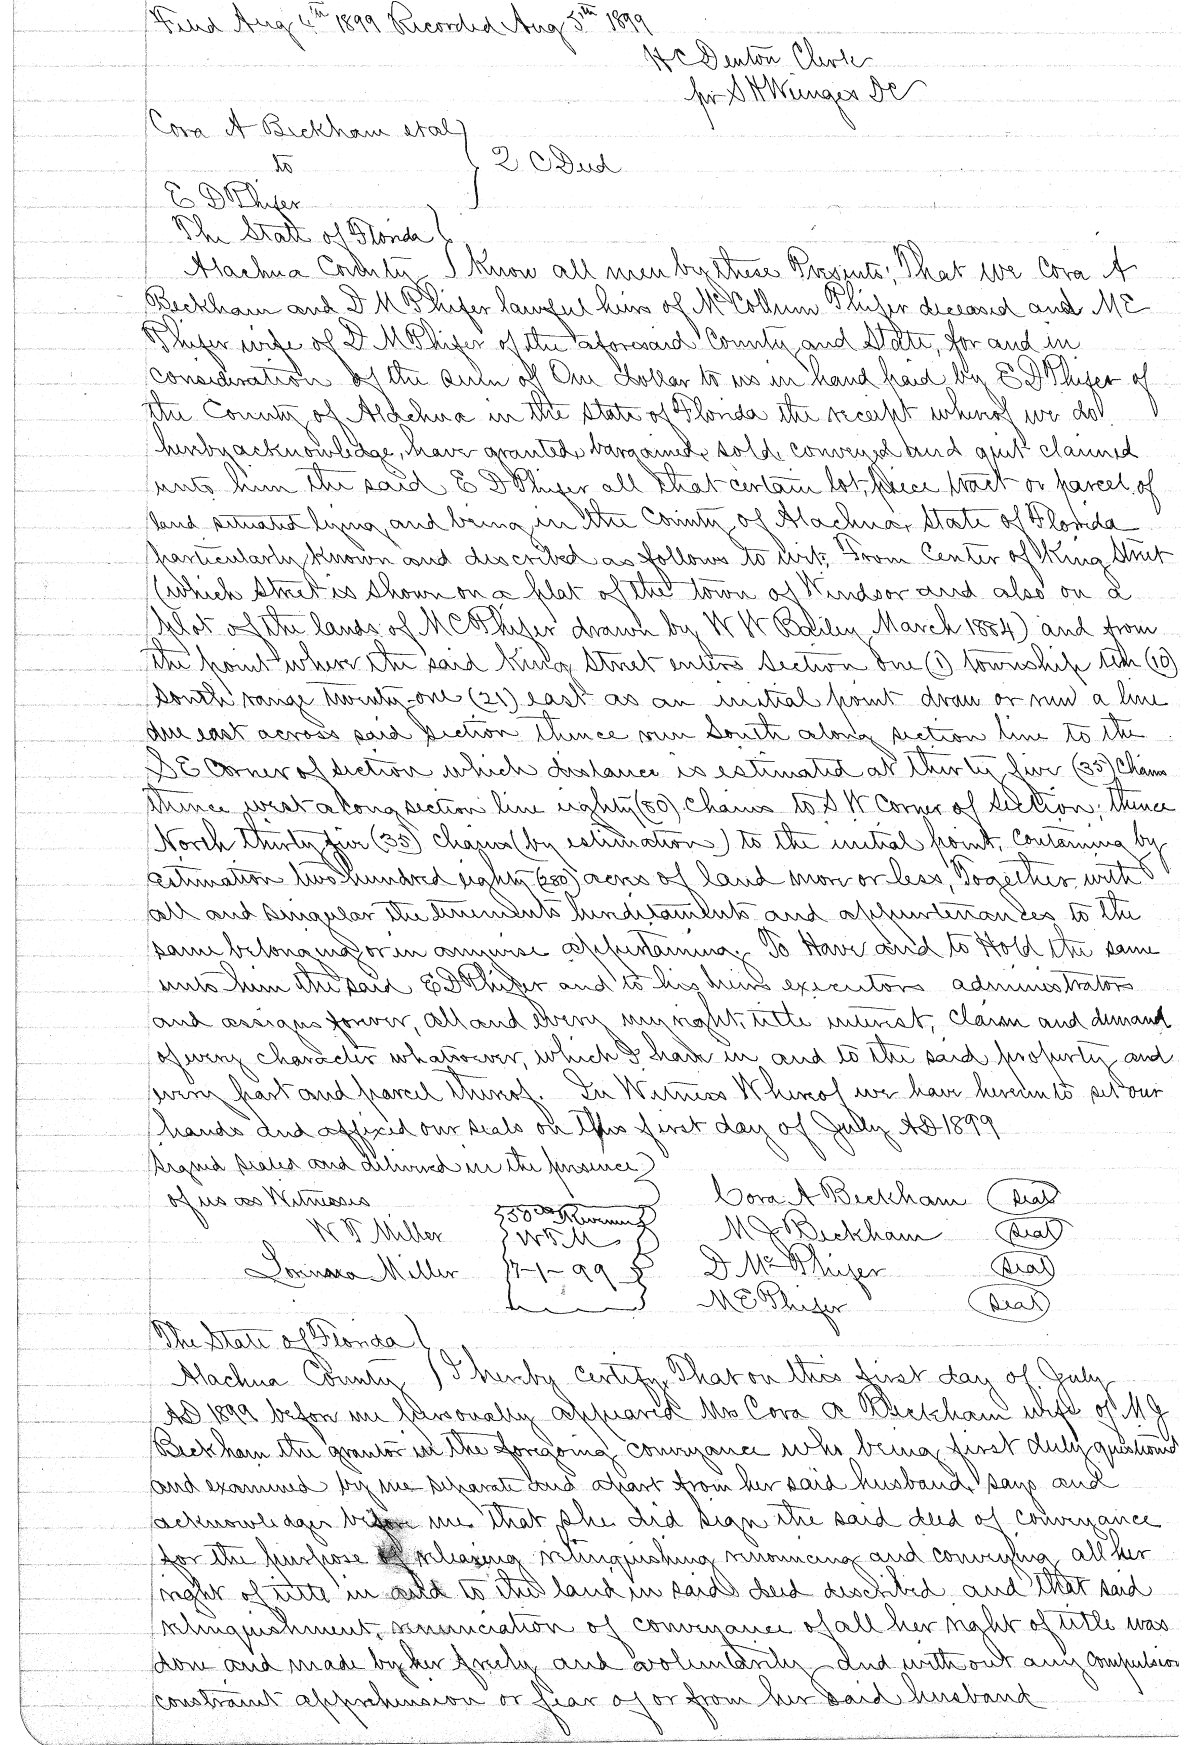 Filed Aug 4th 1899 Recorded Aug 5th 1899
H C Denton Clerk
per S H Wienges DC
Cora A Beckham et al
to
2 C Deed
E D Phifer
The State of Florida
Alachua County Know all men by these Presents; That We Cora A
Beckham and D M Phifer lawful heirs of McCollum Phifer deceased and M E
Phifer wife of D M Phifer of the aforesaid County and State, for and in
consideration of the sum of One dollar to us in hand paid by E D Phifer of
the County of Alachua in the State of Florida the receipt whereof we do
hereby acknowledge, have granted, bargained, sold, conveyed and quit claimed
unto him the said E D Phifer all that certain lot, piece tract or parcel of
land situated lying and being in the County of Alachua, State of Florida
particularly known and described as follows to wit; From Center of King Street
(which Street is shown on a plat of the town of Windsor and also on a
plot of the lands of M C Phifer drawn by W W Bailey March 1884) and from
the point where the said King Street enters Section One (1) township ten (10)
South range twenty-one (21) east as an initial point draw or run a line
due east across said section thence run South along section line to the
S E Corner of section which distance is estimated at thirty five (35) Chains
thence west along section line eighty (80) chains to S W Corner of Section; thence
North thirty five (35) chains (by estimation) to the initial point, Containing by
estimation two hundred eighty (280) acres of land more or less, Together with
all and singular the tenements hereditaments and appurtenances to the
same belonging or in anywise appertaining. To Have and to Hold the same
unto him the said E D Phifer and to his heirs executors administrators
and assigns forever, all and every my right, title interest, claim and demand
of every character whatsoever, which I have in and to the said property and
every part and parcel thereof. In Witness Whereof we have hereunto set our
hands and affixed our seals on this first day of July AD 1899
Signed sealed and delivered in the presence
of us as Witnesses Cora A Beckham Seal
W F Miller 50cts Revenue W F M M J Beckham Seal
Miller 7-1-99 D Mc Phifer Seal
M E Phifer Seal
The State of Florida
Alachua County I hereby certify, That on this first day of July
AD 1899 before me personally appeared Mrs Cora A Beckham wife of M J
Beckham the grantor in the foregoing conveyance who being first duly questioned
and examined by me separate and apart from her said husband, says and
acknowledges before me that she did sign the said deed of conveyance
for the purpose of releasing relinquishing renouncing and conveying all her
right of title in and to the land in said deed described and that said
relinquishment, renunciation of conveyance of all her right of title was
done and made by her freely and voluntarily and without any compulsion
constraint apprehension or fear of or from her said husband